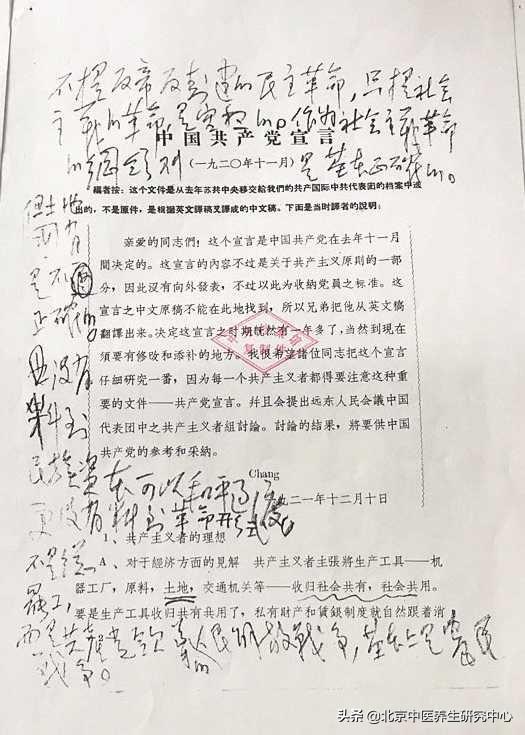 不提反帝反封建的民主革命,只提社会
主义的革命,是空想的。作为社会主义革命
的纲领则 是基本正确的。
中国共产党宣言
(一九二〇年十一月)
編者按:这个文件是从去年苏共中央移交給我們的共产国际中共代表团的档案中找
出的,不是原件,是根据英文譯稿又譯成的中文稿。下面是当时譯者的說明:
但土地
国有
是不
正确的。
没有
料到
民族資本可以和平过渡
更没有料到革命形式
不是总
罢工,
而是共产党領导的人民解放战争,基本上是农民
战争。
亲爱的同志們! 这个宣言是中国共产党在去年十一月
間决定的。这宣言的內容不过是关于共产主义原則的一部
分,因此沒有向外發表,不过以此为收納党員之标准。这
宣言之中文原稿不能在此地找到,所以兄弟把他从英文稿
翻譯出来。决定这宣言之时期旣然有一年多了,当然到現在
須要有修改和添补的地方。我很希望諸位同志把这个宣言
仔細研究一番,因为每一个共产主义者都得要注意这种重
要的文件——共产党宣言。幷且会提出远东人民会議中国
代表团中之共产主义者組討論。討論的結果,將要供中国
共产党的参考和采納。
Chang
一九二一年十二月十日
1、共产主义者的理想
A、对于經济方面的見解 共产主义者主張將生产工具——机
器工厂,原料,土地,交通机关等——收归社会共有,社会共用。
要是生产工具收归共有共用了,私有財产和賃銀制度就自然跟着消
头条 @北京中医养生研究中心